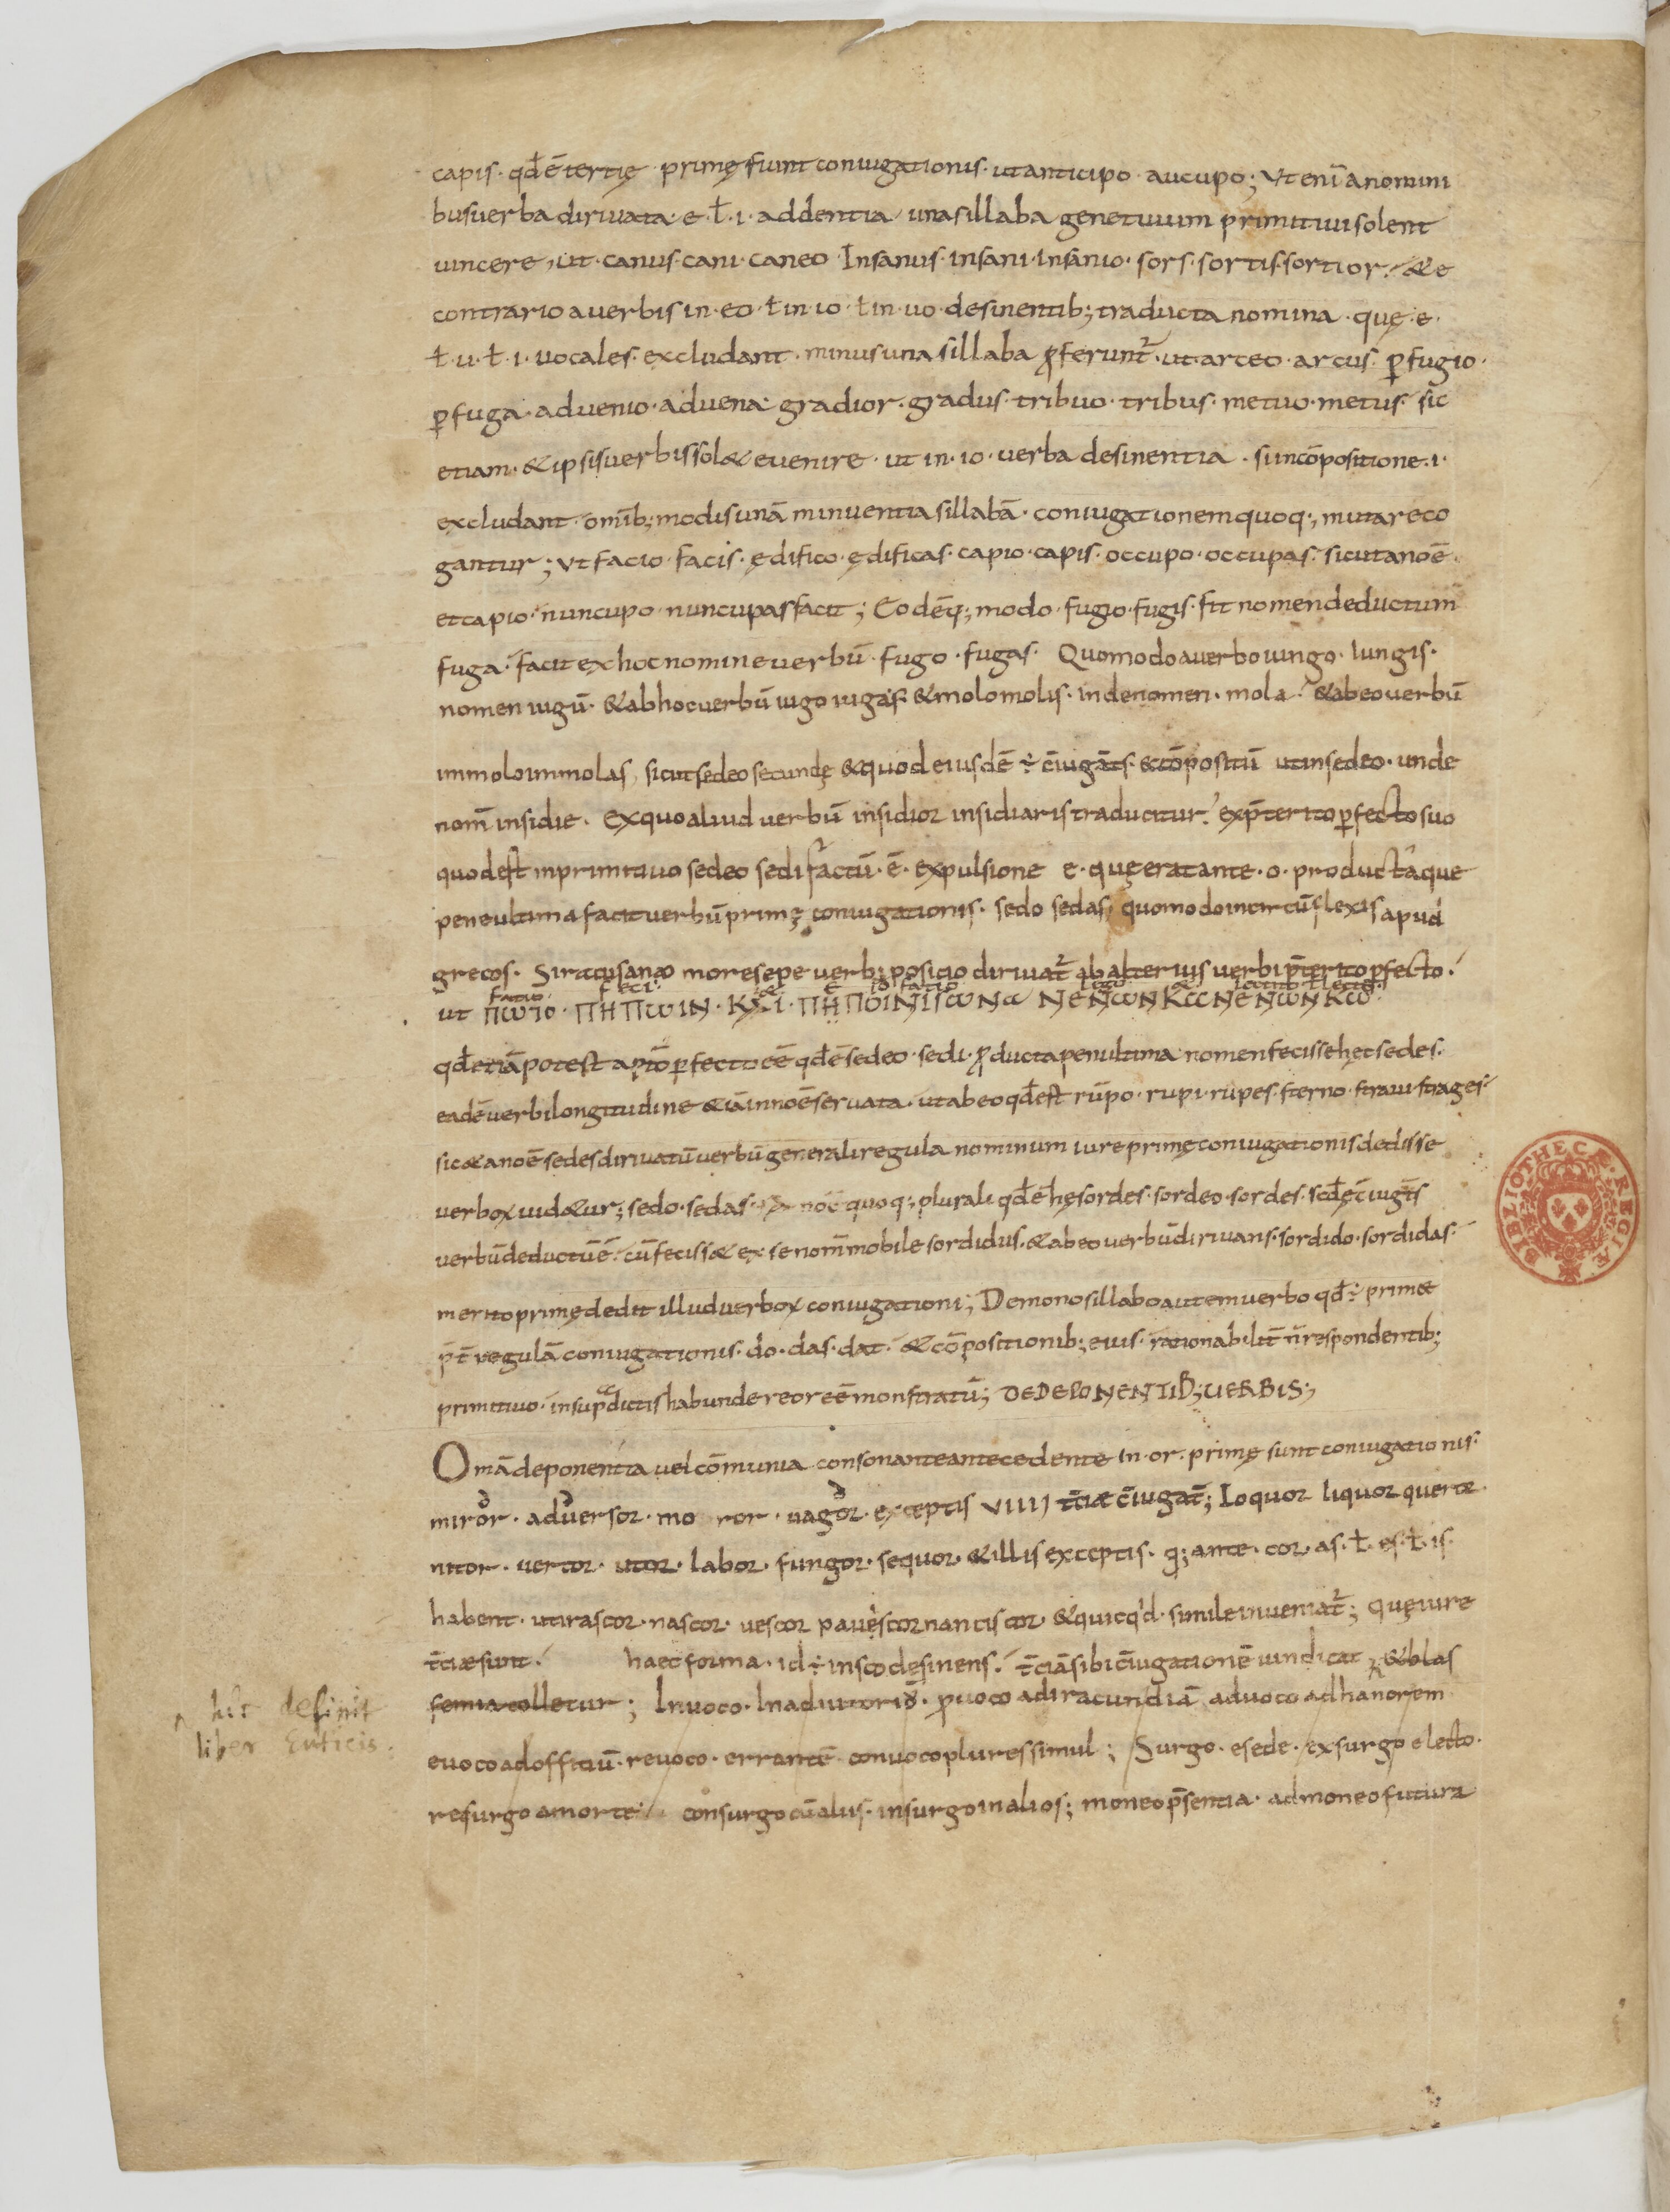 capis · qđ ē tertię · primę fiunt coniugationis · ut anticipo · aucupo ; Vt eni͂ a nomini
bus uerba diriuata · e · ł · i · addentia una sillaba genetiuum primitiui solent
uincere, ut · canus · cani · caneo · Insanus · insani · insanio · sors · sortis · sortior · & e
contrario a uerbis in · eo · ł in · io · ł in · uo · desinentib; traducta nomina · quę · e ·
ł · u · ł · i · uocales · excludant · minus una sillaba ꝓferunt᷑ · ut arceo · arcus · ꝑfugio ·
ꝑfuga · aduenio · aduena · gradior · gradus · tribuo · tribus · metuo · metus · sic
etiam · & ipsis uerbis sol& euenire · ut in · io · uerba desinentia · sun cōpositione · i ·
excludant · omīb; modis unā minuentia sillabā · coniugationem quoq; mutare co
gantur ; Vt facio · facis · ędifico · ędificas · capio · capis · occupo · occupas · sicut a noē ·
et capio · nuncupo · nuncupas facit ; Eodēq; modo · fugio · fugis · fit nomen deductum
fuga · facit ex hoc nomine uerbū · fugo · fugas · Quomodo a uerbo iungo · Iungis ·
nomen iugū · & ab hoc uerbū iugo iugas · & molo molis · inde nomen · mola · & ab eo uerbū
immolo immolas, sicut sedeo secundę & quod eiusdē ÷ c̄iugāts & cōpositū ut insedeo · unde
nom̄ insidie · Ex quo aliud uerbū insidior insidiaris traducitur · ex p̄terito ꝑfecto suo
quod est in primitiuo sedeo sedi factū · ē · expulsione e · quę erat ante · o · productaque
peneultima facit uerbū primę coniugationis · sedo sedas, quomodo in circūflexis apud
grecos · Siracusanoꝝ more sepe uerbi positio diriuat᷑ ab alterius uerbi p̄terito pfecto ·
Facio · Feci · & · E · io facio · lego · &
ut ΠωΙο · ΠΗΠωΙΝ ·
qđ etiā potest a p̄tō ꝑfecto eē qđ ē sedeo · sedi · ꝓducta penultima nomen fecisse hęc sedes ·
eadē uerbi longitudine &iā in noē seruata · ut ab eo qđ est rūpo · rupi · rupes · sterno · straui · strages ·
sic & a noē sedes diriuatū uerbū generali regula nominum iure primę coniugationis dedisse
uerboꝝ uid&ur ; sedo · sedas · noē quoq; plurali qđ ē hę sordes · sordeo · sordes · scđę c̄iugīs
uerbū deductū ē · cū feciss& ex se nom̄ mobile sordidus · & ab eo uerbū diriuans · sordido · sordidas ·
merito primę dedit illud uerboꝝ coniugationi ; De monosillabo autem uerbo qđ ÷ primæ
p̄t regulā coniugationis · do · das · dat · & cōpositionib; eius · rationabilit̄ n̄ respondentib;
primitiuo · in supdictis habunde reor eē monstratū ; DE DEPONENTIB; UERBIS ;
Om̄a deponentia uel cōmunia consonante antecedente in · or · primę sunt coniugationis ·
miror · aduersor · mo ror · uagor · exceptis VIIII t̄ciæ c̄iugat̄ ; Loquor liquor queror
nitor · uertor · utor · labor · fungor · sequor · & illis exceptis · q; ante · cor · as · ł · es · ł · is ·
habent · ut irascor · nascor · uescor pauescor nanciscor · & quicq'd · simile inueniat᷑ ; quę iure
t̄ciæ sunt · haec forma · id ÷ in sco desinens · t̄ciā sibi c̄iugationē uindicat & blas
femia colletur ; Inuoco · In adiutoriū · ꝓuoco ad iracundiā aduoco ad hanorem
euoco ad officiū · reuoco · errantē conuoco plures simul ; Surgo · e sede · exsurgo e lecto ·
resurgo a morte · consurgo cū alus · insurgo in alios ; moneo p̄sentia · admoneo futura
hîc definit
liber Euticis :
BIBLIOTHECÆ REGIÆ